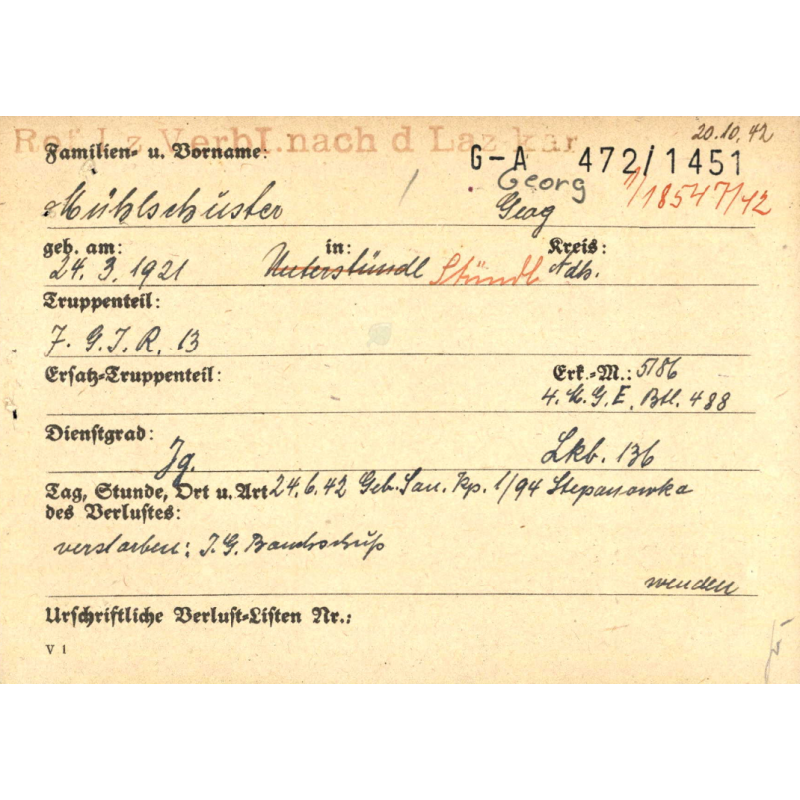 20.10.42
Ref. Lz. Verbl. nach d Laz kar
Familien- u. Vorname:
G-A 472/1451
Georg
Mühlschuster Georg 1/18547/42
geb. am: in: Kreis:
24. 3. 1921 Unterstündl Stündl Ndb.
Truppenteil:
7. G. J. R. 13
Ersatz-Truppenteil: Erk.-M.: 5186
4. K. G. E. Btl. 488
Dienstgrad:
Jg. Lkb. 136
Tag, Stunde, Ort u. Art 24.6.42 Geb. San. Kp. 1/94 Stepanowka
des Verlustes:
verstorben: I. G. Bauchschuß
wenden
Urschriftliche Verlust-Listen Nr.:
V 1